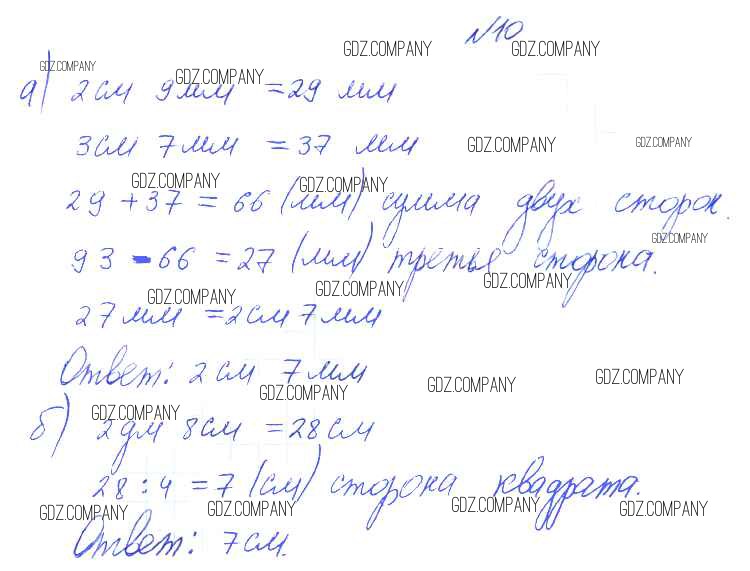 №10
GDZ.COMPANY GDZ.COMPANY
GDZ.COMPANY GDZ.COMPANY
а) 2 см 9 мм = 29 мм
3 см 7 мм = 37 мм
GDZ.COMPANY GDZ.COMPANY
GDZ.COMPANY GDZ.COMPANY
29 + 37 = 66 (мм) сумма двух сторон.
GDZ.COMPANY
93 - 66 = 27 (мм) третья сторона.
GDZ.COMPANY GDZ.COMPANY GDZ.COMPANY
27 мм = 2 см 7 мм
Ответ: 2 см 7 мм
GDZ.COMPANY GDZ.COMPANY GDZ.COMPANY
GDZ.COMPANY
б) 2 дм 8 см = 28 см
28 : 4 = 7 (см) сторона квадрата.
GDZ.COMPANY GDZ.COMPANY GDZ.COMPANY GDZ.COMPANY
Ответ: 7 см.